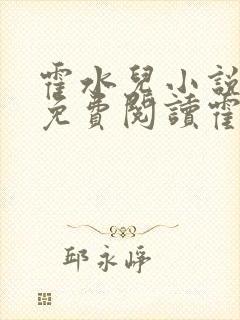 霍水兒小說
免費閱讀霍
邱永崢